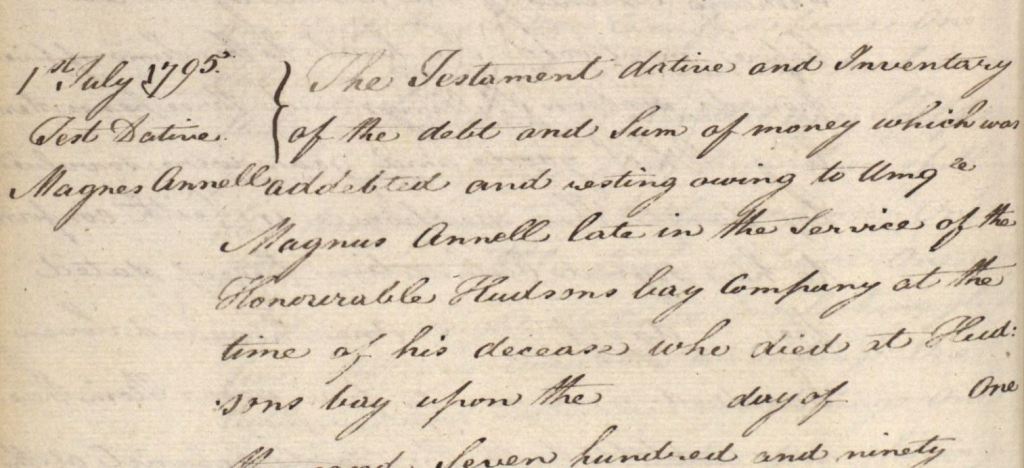 1st July 1795.
Test Dative
Magnes Annell
The Testament dative and Inventary
of the debt and Sum of money which was
addebted and resting owing to Umqle
Magnus Annell late in the Service of the
Honourable Hudsons bay Company at the
time of his decease who died at Hud:
sons bay upon the day of One
thousand Seven hundred and ninety